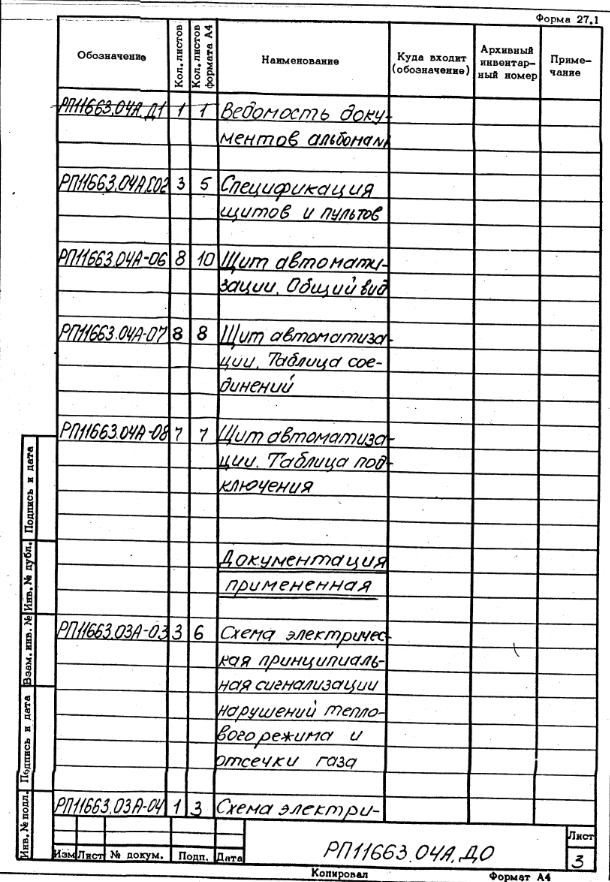 Форма 27.1
Обозначение
Кол. листов
Кол. листов формата А4
Наименование
Куда входит (обозначение)
Архивный инвентар-ный номер
Приме-чание
РП11663.04А.Д1 1 1 Ведомость доку-
ментов альбома
РП11663.04А.С02 3 5 Спецификация
щитов и пультов
РП11663.04А-06 8 10 Щит автомати-
зации. Общий вид
РП11663.04А-07 8 8 Щит автоматиза-
ции. Таблица сое-
динений
РП11663.04А-08 7 7 Щит автоматиза-
ции. Таблица под-
ключения
Документация
примененная
РП11663.03А-03 3 6 Схема электричес-
кая принципиаль-
ная сигнализации
нарушений тепло-
вого режима и
отсечки газа
РП11663.03А-04 1 3 Схема электри-
Инв. № подл.
Подпись и дата
Взам. инв. №
Инв. № дубл.
Подпись и дата
Изм Лист № докум. Подп. Дата
РП11663.04А.Д0
Лист
3
Копировал
Формат А4